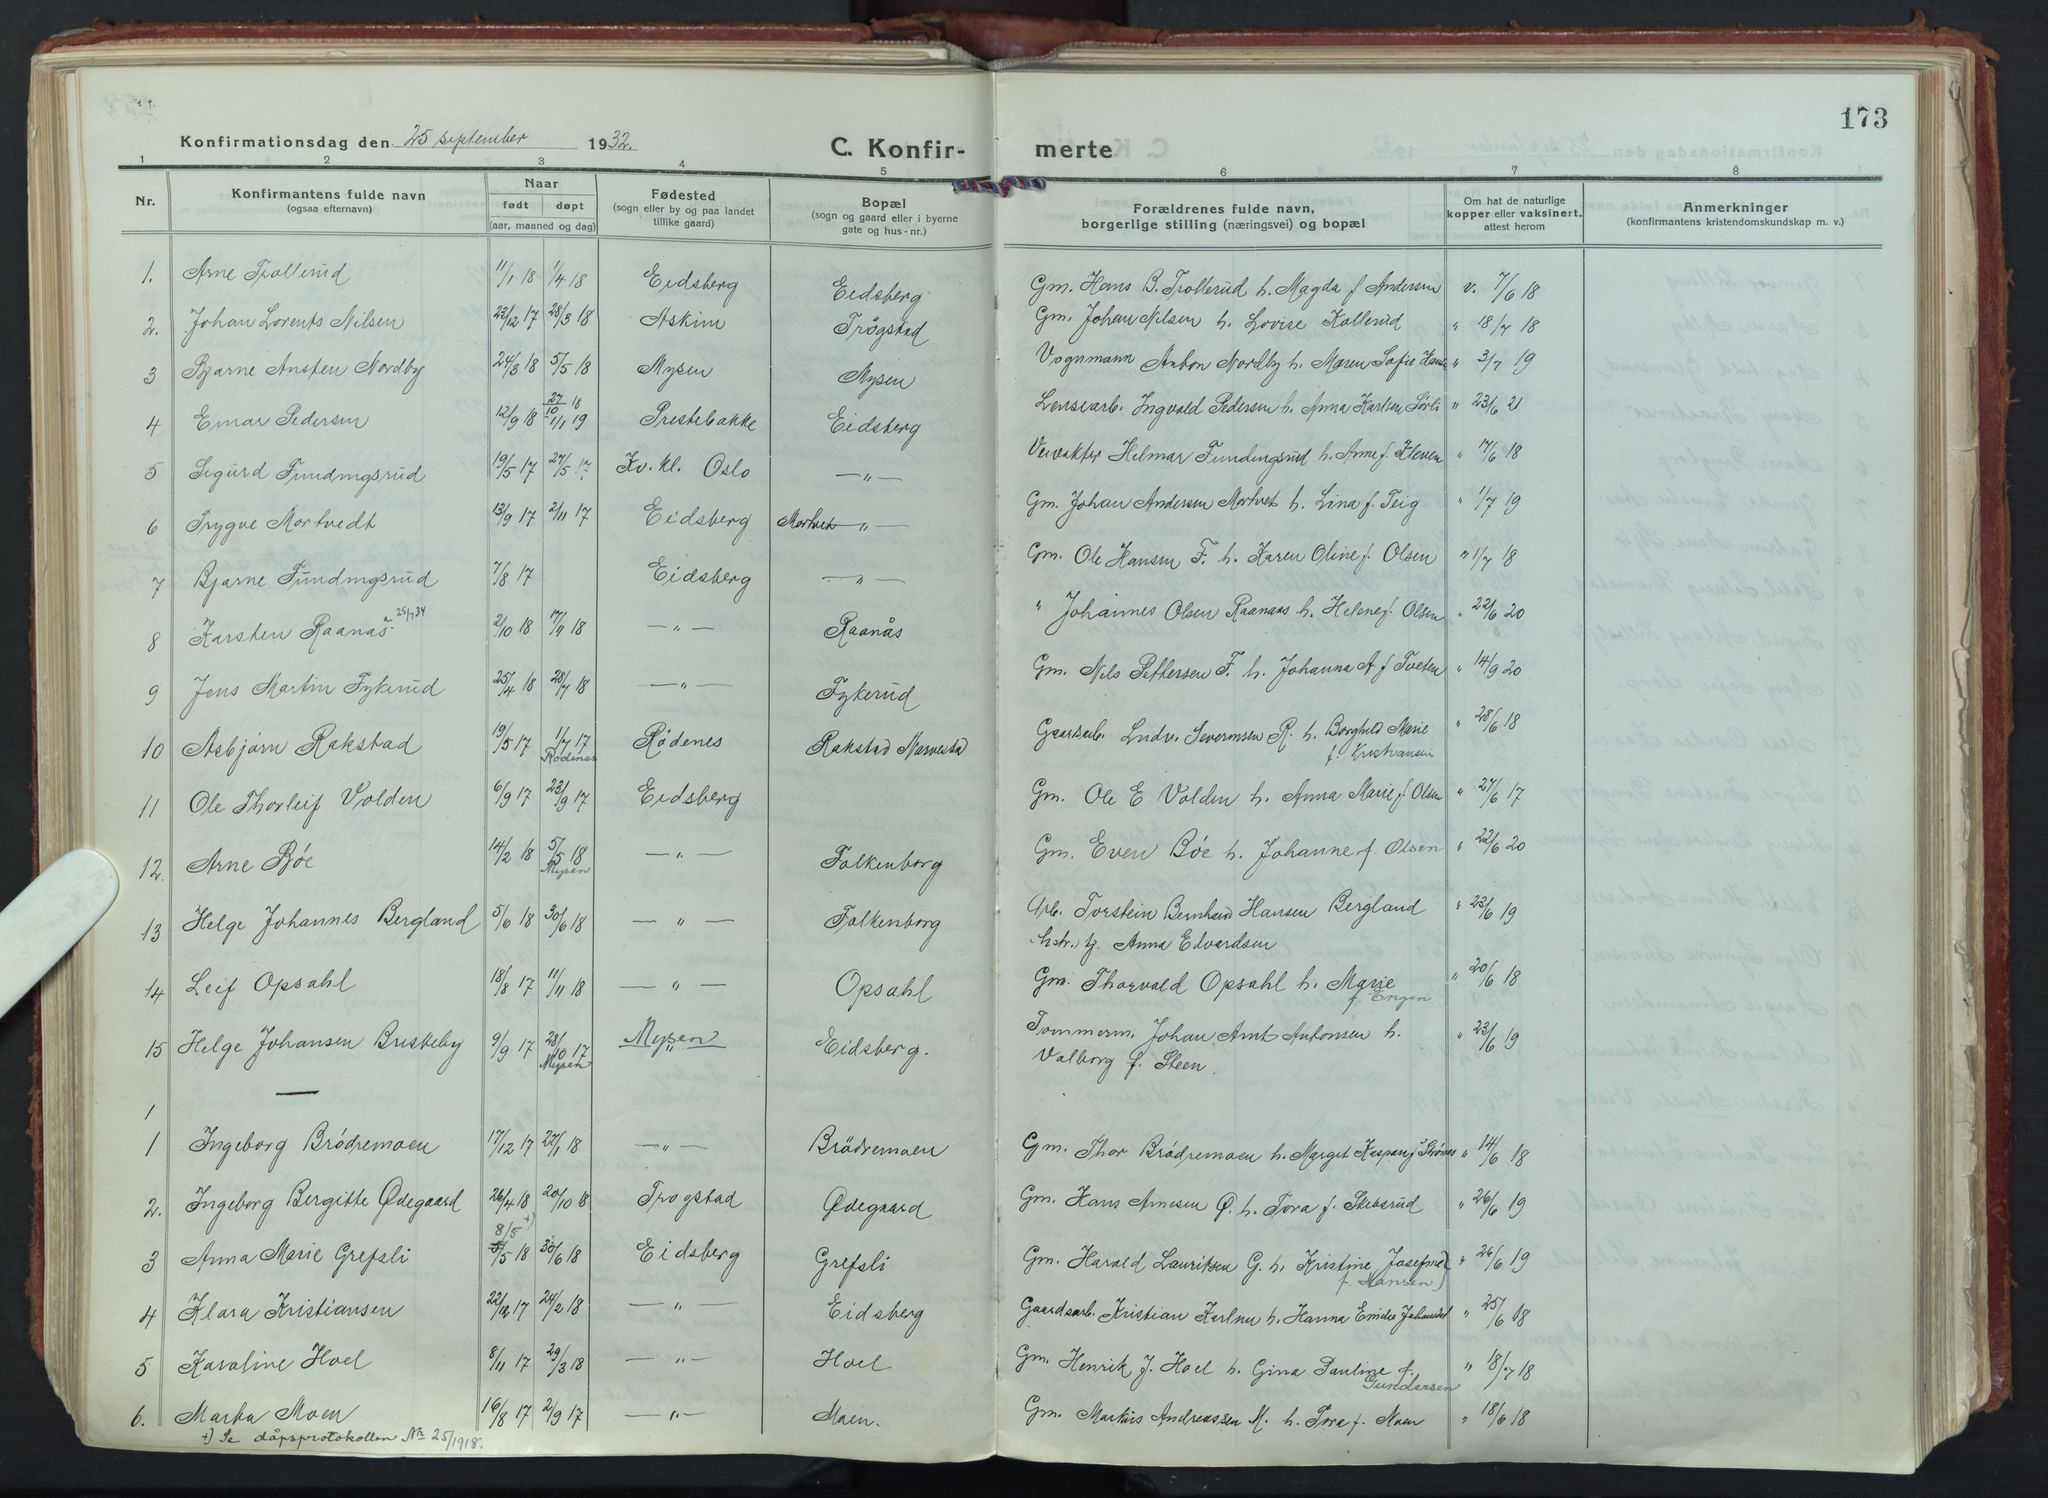 173
Konfirmationsdag den 25 september 1932. C. Konfir- merte
1 2 3 4 5 6 7 8
Nr. Konfirmantens fulde navn (ogsaa efternavn) Naar født døpt (aar, maaned og dag) Fødested (sogn eller by og paa landet tillike gaard) Bopæl (sogn og gaard eller i byerne gate og hus-nr.) Forældrenes fulde navn, borgerlige stilling (næringsvei) og bopæl Om hat de naturlige kopper eller vaksinert, attest herom Anmerkninger (konfirmantens kristendomskundskap m. v.)
1. Arne Trollerud 11/1 18 1/4 18 Eidsberg Eidsberg Gm. Hans B. Trollerud h. Magda f Andersen v. 7/6 18
2. Johan Lorents Nilsen 23/12 17 28/3 18 Askim Trøgstad Gm. Johan Nilsen h. Lovise Kollerud " 18/7 18
3 Bjarne Ansten Nordby 24/3 18 5/5 18 Mysen Mysen Vognmann Anton Nordby h. Maren Sofie Hans " 3/7 19
4 Einar Pedersen 12/9 18 27/10 18 1/1 19 Prestebakke Eidsberg Lensearb. Ingvald Pedersen h. Anna Karlsen Sørli " 23/6 21
5 Sigurd Fundingsrud 19/5 17 27/5 17 Kv. kl. Oslo — " — Veivokter Helmar Fundingsrud h. Anne f. Kleven " 17/6 18
6 Trygve Mortvedt 13/9 17 2/11 17 Eidsberg Mortvet " — Gm. Johan Andersen Mortvet h. Lina f. Teig " 1/7 19
7 Bjarne Fundingsrud 7/8 17 Eidsberg — " — Gm. Ole Hansen F. h. Karen Oline f. Olsen " 1/7 18
8 Karsten Raanas 25/7 34 2/10 18 17/11 18 — " — Raanås " Johannes Olsen Raanaas h. Helene f. Olsen " 22/6 20
9 Jens Martin Fykerud 25/4 18 28/7 18 — " — Fykerud Gm. Nils Pettersen F. h. Johanna A f Tveten " 14/9 20
10 Asbjørn Rakstad 19/5 17 1/7 17 Rødenes Rödenes Rakstad Gaardsarb. Ludv. Severinsen R. h. Borghild Marie " 28/6 18
f. Kristiansen
11 Ole Thorleif Volden 6/9 17 23/9 17 Eidsberg Gm. Ole E Volden h. Anna Marie f Olsen " 27/6 17
12. Arne Bøe 14/2 18 5/5 18 Mysen — " — Folkenborg Gm. Even Bøe h. Johanne f. Olsen " 22/6 20
13 Helge Johannes Bergland 5/6 18 30/6 18 — " — Folkenborg Arb. Torstein Bernhard Hansen Bergland " 23/6 19
Anna Edvardsen
14 Leif Opsahl 18/8 17 11/11 18 — " — Opsahl Gm. Thorvald Opsahl h. Marie " 20/6 18
f. Engen
15 Helge Johansen Briskeby 9/9 17 28/10 17 Mysen Mysen " Eidsberg. Tommerm. Johan Arnt Antonsen h. " 23/6 19
Valborg f. Steen.
—
1
1 Ingeborg Brödremoen 17/12 17 27/1 18 — " — Brödremoen Gm. Thor Brödremoen h. Margit Kaspara f " 14/6 18
2. Ingeborg Bergitte Ødegaard 26/4 18 20/10 18 Trøgstad Ødegaard Gm. Hans Arnesen Ø. h. Tora f. Skibsrud " 26/6 19
3 Anna Marie Grefsli 8/5 +) 5/5 18 30/6 18 Eidsberg Grefsli Gm. Harald Lauritsen G. h. Kristine Josefine " 26/6 19
f. Hansen)
4 Klara Kristiansen 22/12 17 24/2 18 — " — Eidsberg Gaardsarb. Kristian Karlsen h. Hanna Emilie " 25/6 18
5 Karoline Hoel 8/11 17 29/3 18 — " — Hoel Gm. Henrik J. Hoel h. Gina Pauline f. " 18/7 18
Gundersen
6. Marta Moen 16/8 17 2/9 17 — " — Moen. Gm. Markus Andreassen M. h. Tora f. Moen " 18/6 18
+) Se dåpsprotokollen Nr 25/1918.